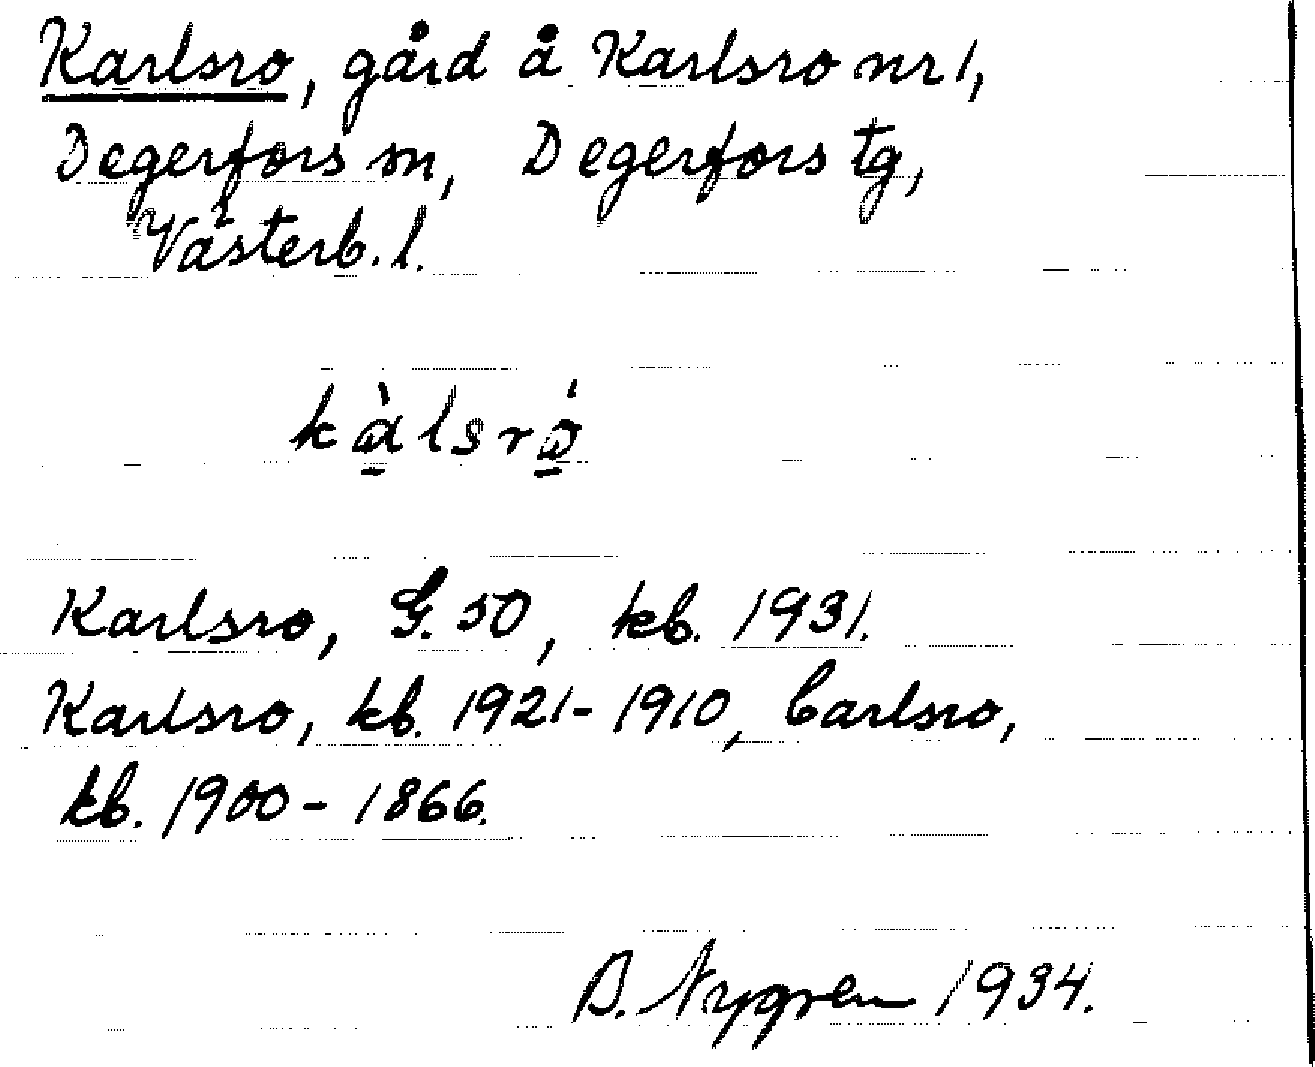 Karlsro, gård å Karlsro nr 1,
Degerfors sn, Degerfors tg,
Västerb. l.
kàlsró
Karlsro, G. 50, kb. 1931.
Karlsro, kb. 1921-1910, Carlsro,
kb. 1900-1866.
B. Nygren 1934.